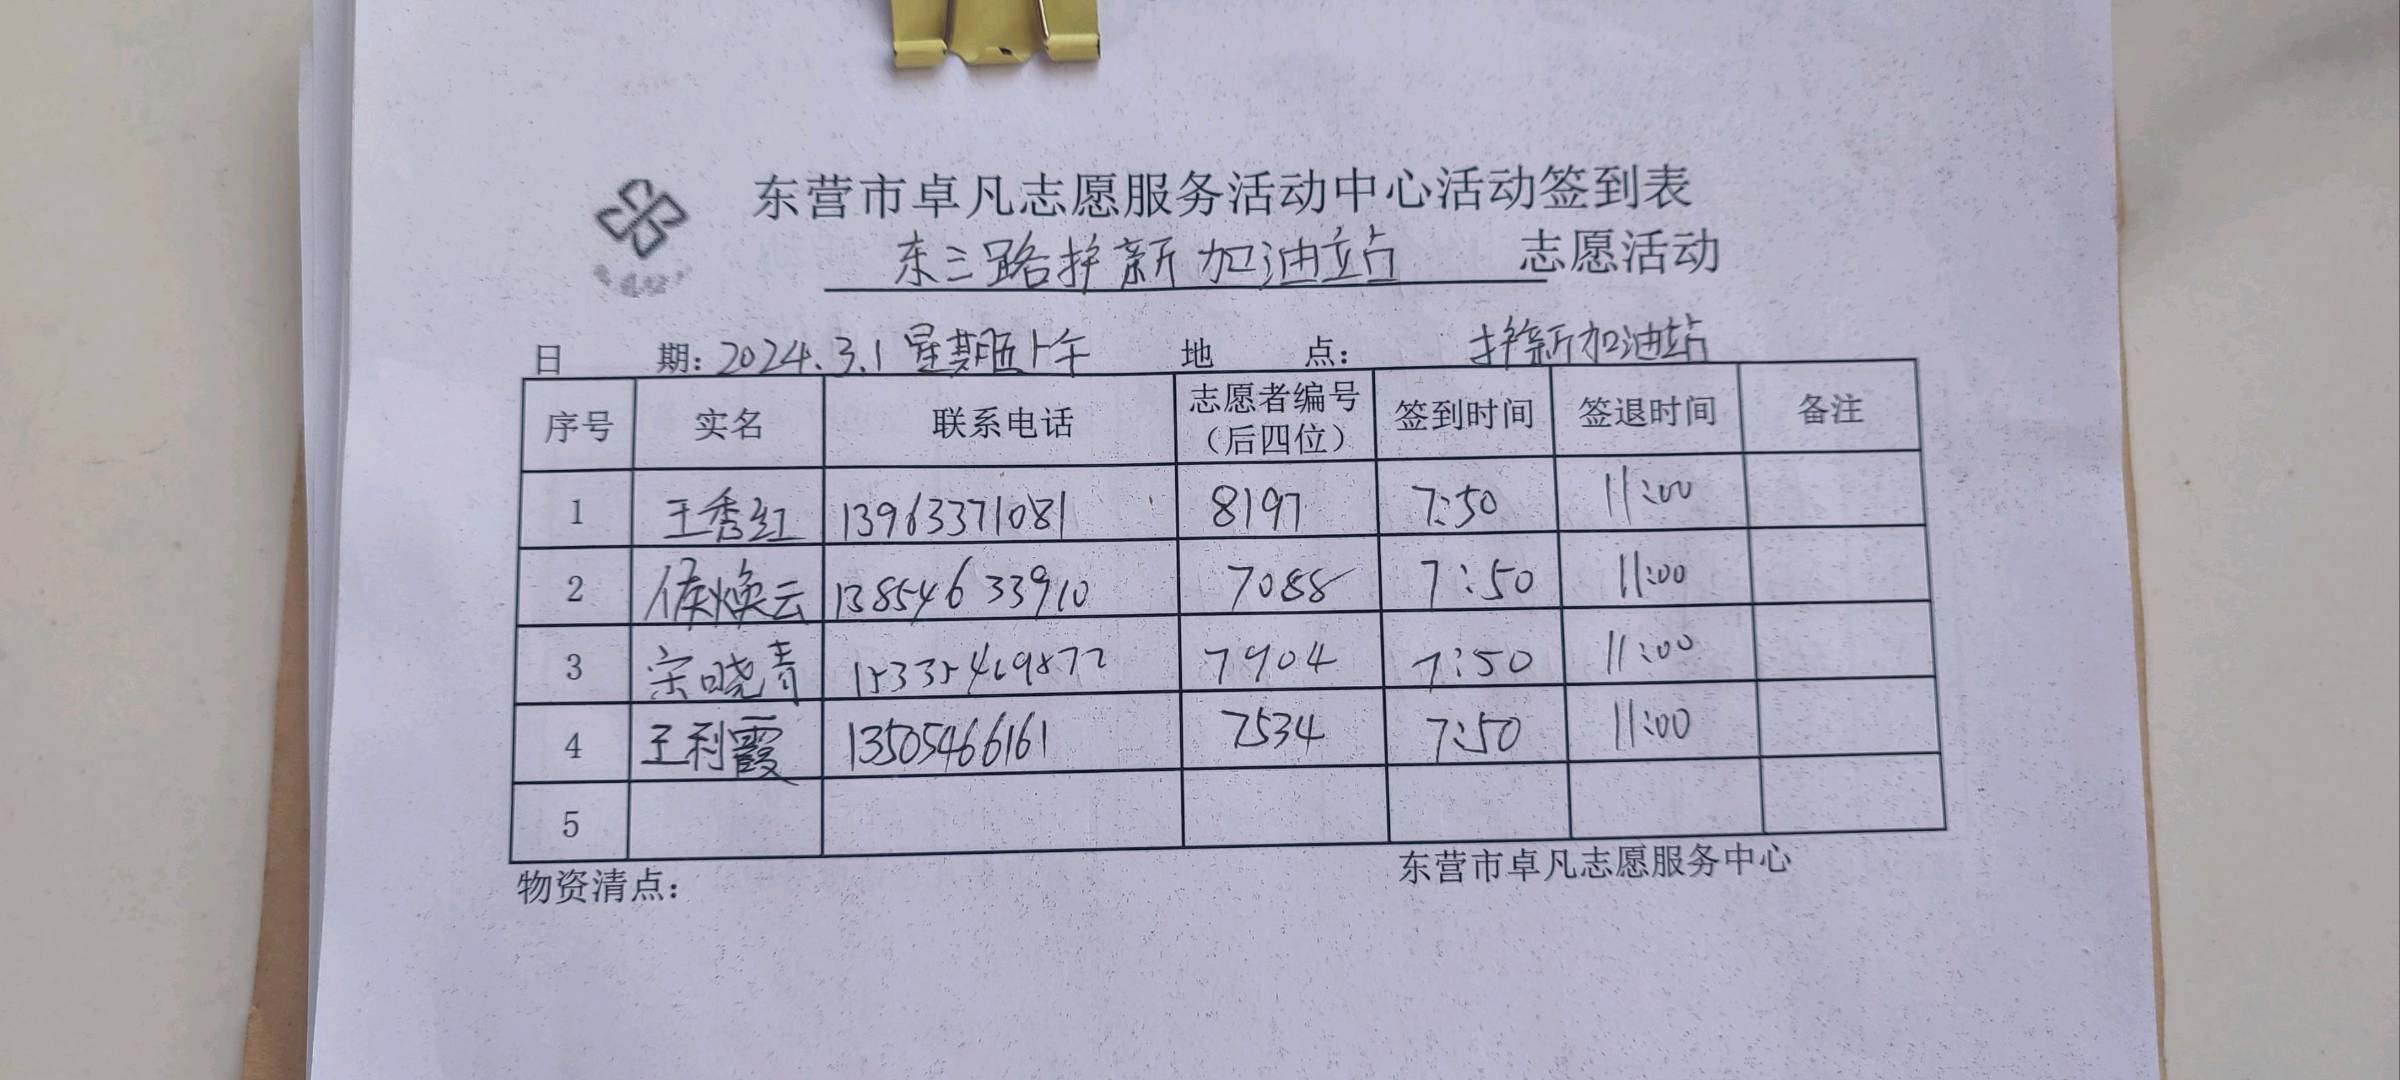 东营市卓凡志愿服务活动中心活动签到表
东三路护新加油站 志愿活动
日 期: 2024.3.1 星期五上午 地 点: 护新加油站
序号 实名 联系电话 志愿者编号（后四位） 签到时间 签退时间 备注
1 王秀红 13963371081 8197 7:50 11:00
2 侯焕云 13854633910 7088 7:50 11:00
3 宋晓青 15335469872 7904 7:50 11:00
4 王利霞 13505466161 7534 7:50 11:00
5
物资清点: 东营市卓凡志愿服务中心